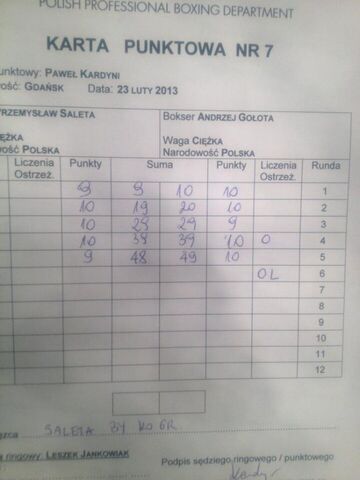 POLISH PROFESSIONAL BOXING DEPARTMENT
KARTA PUNKTOWA NR 7
unktowy: PAWEŁ KARDYNI
wość: GDAŃSK Data: 23 LUTY 2013
PRZEMYSŁAW SALETA Bokser ANDRZEJ GOŁOTA
ĘŻKA Waga CIĘŻKA
wość POLSKA Narodowość POLSKA
Liczenia Punkty Suma Punkty Liczenia Runda
Ostrzeż. Ostrzeż.
9 9 10 10 1
10 19 20 10 2
10 29 29 9 3
10 39 39 10 O 4
9 48 49 10 5
O.L 6
7
8
9
10
11
12
ęzca SALETA BY KO 6R
a ringowy: LESZEK JANKOWIAK
Podpis sędziego ringowego / punktowego